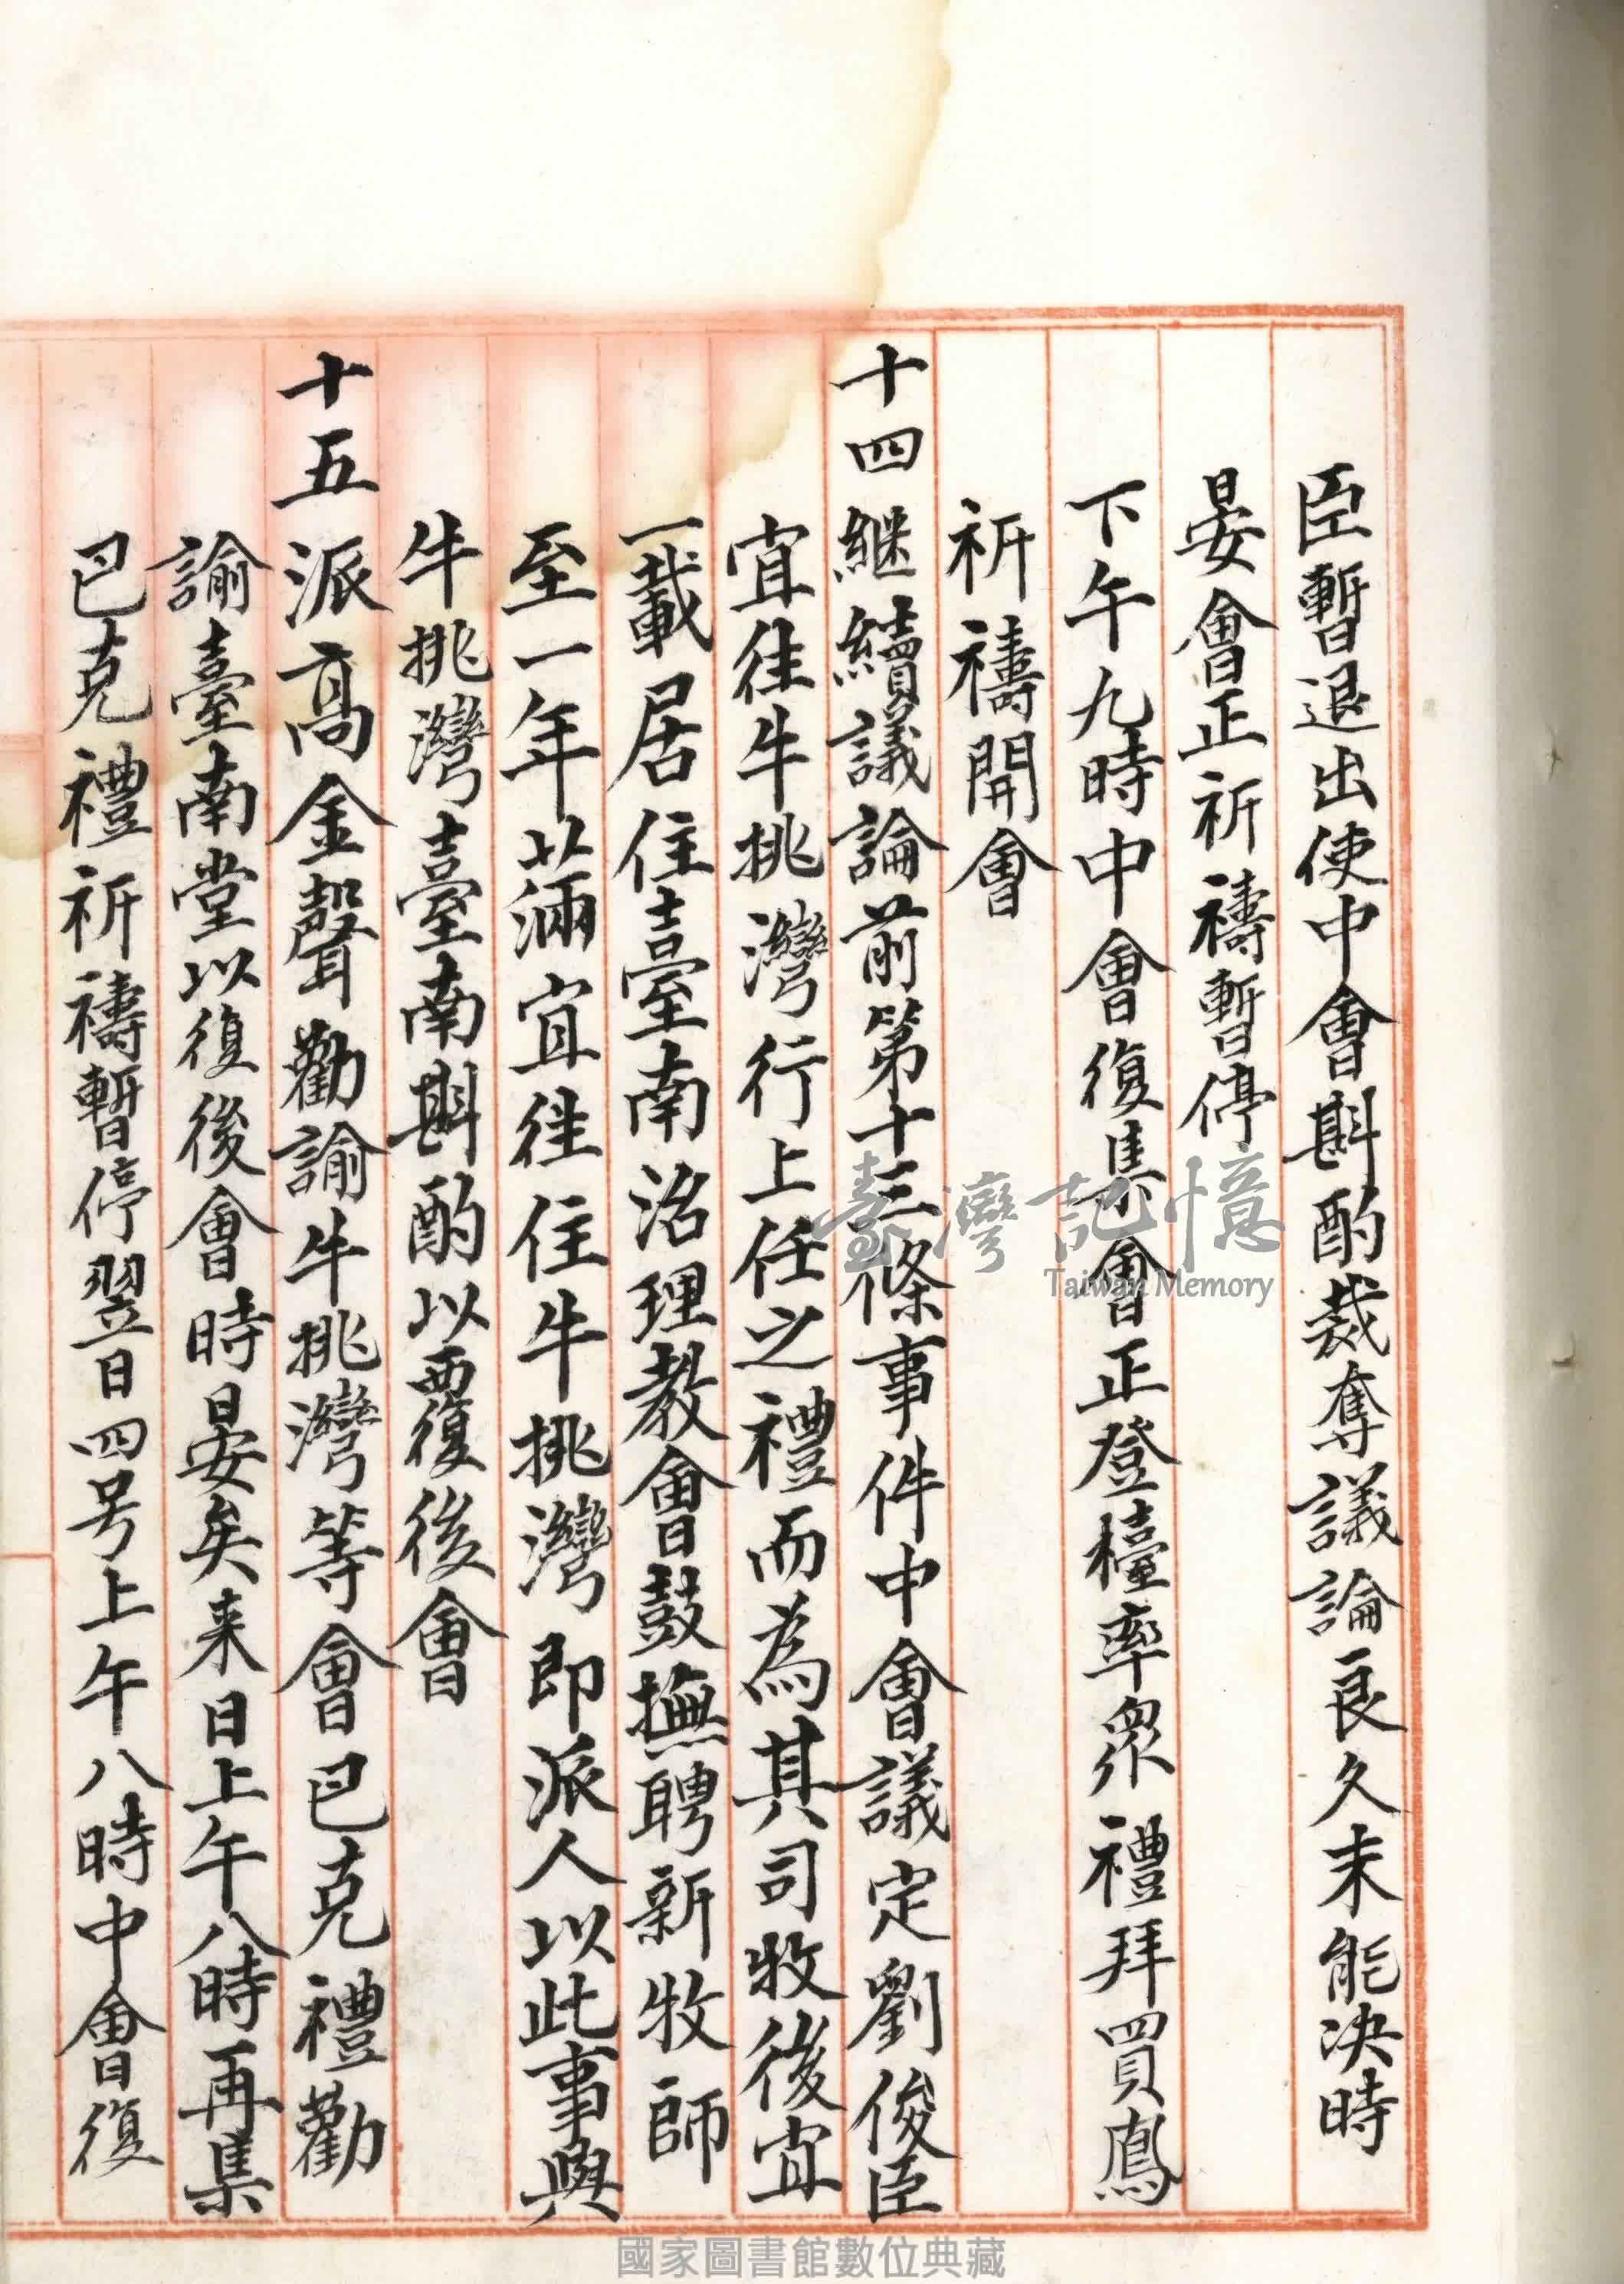 臣暫退出使中會斟酌裁奪議論良久未能决時
晏會正祈禱暫停
下午九時中會復集會正登檯率眾禮拜買鳳
祈禱開會
十四継續議論前第十三條事件中會議定劉俊臣
宜徃牛挑灣行上任之禮而為其司牧後宜
一載居住臺南洺理教會鼓撫聘新牧師
至一年苁滿宜徃住牛挑灣即派人以此事與
牛挑灣臺南斟酌以覆後會
十五派高金聲勸諭牛挑灣等會已克禮勸
諭臺南堂以復後會時晏矣来日上午八時再集
已克禮祈禱暫停翌日四号上午八時中會復
臺灣記憶
Taiwan Memory
國家圖書館數位典藏